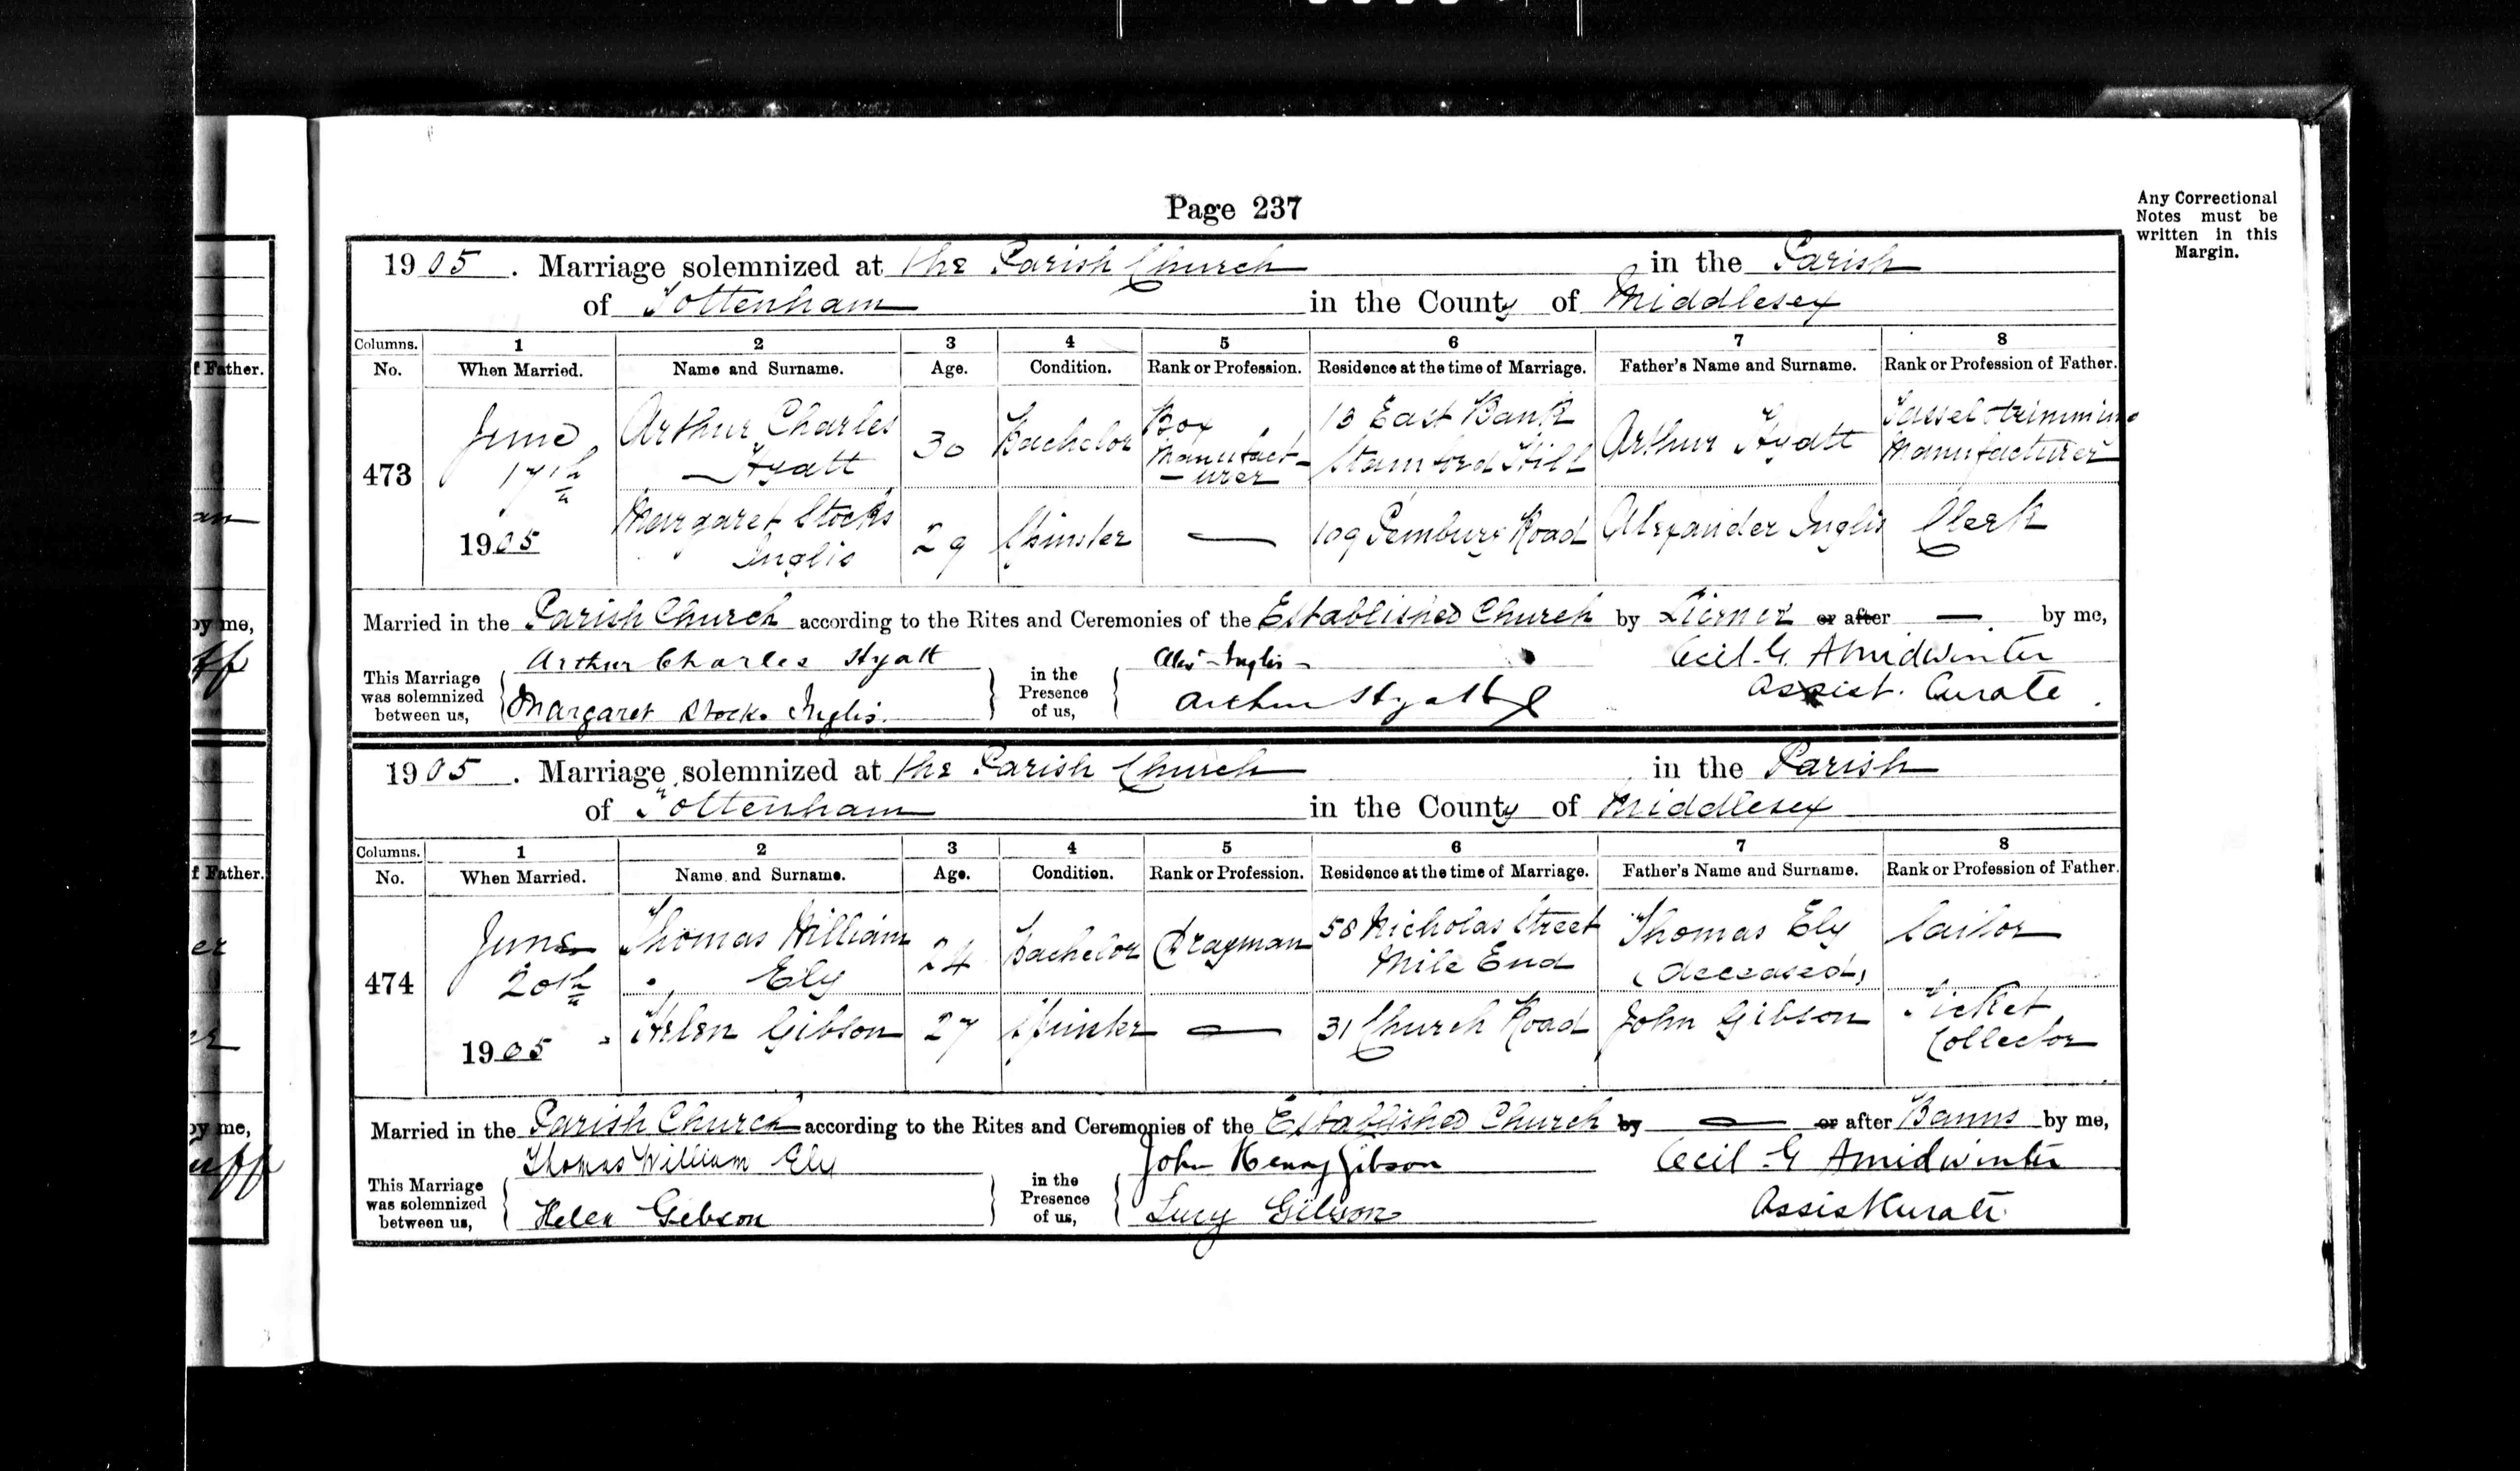 Page 237
Any Correctional
Notes must be
written in this
Margin.
1905. Marriage solemnized at the Parish Church in the Parish
of Tottenham in the County of Middlesex
Columns. 1 2 3 4 5 6 7 8
No. When Married. Name and Surname. Age. Condition. Rank or Profession. Residence at the time of Marriage. Father's Name and Surname. Rank or Profession of Father.
473 June 17th 1905 Arthur Charles Hyatt 30 Bachelor Box Manufacturer 13 East Bank Stamford Hill Arthur Hyatt Tassel trimming Manufacturer
Margaret Stocks Inglis 29 Spinster — 109 Pembury Road Alexander Inglis Clerk
Married in the Parish Church according to the Rites and Ceremonies of the Established Church by License or after — by me,
This Marriage was solemnized between us, Arthur Charles Hyatt in the Presence of us, Alexr Inglis Cecil G. Amidwinter
Margaret Stocks Inglis Arthur Hyatt Assist. Curate
1905. Marriage solemnized at the Parish Church in the Parish
of Tottenham in the County of Middlesex
Columns. 1 2 3 4 5 6 7 8
No. When Married. Name and Surname. Age. Condition. Rank or Profession. Residence at the time of Marriage. Father's Name and Surname. Rank or Profession of Father.
474 June 20th 1905 Thomas William Ely 24 Bachelor Drayman 58 Nicholas Street Mile End Thomas Ely (deceased) Sailor
Helen Gibson 27 Spinster — 31 Church Road John Gibson Ticket Collector
Married in the Parish Church according to the Rites and Ceremonies of the Established Church by — or after Banns by me,
This Marriage was solemnized between us, Thomas William Ely in the Presence of us, John Henry Gibson Cecil G Amidwinter
Helen Gibson Lucy Gibson Assist Curate
f Father.
by me,
f Father.
by me,